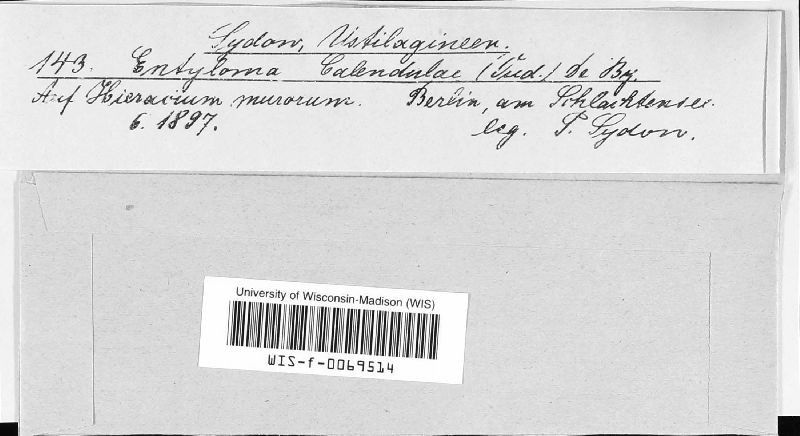 Sydow, Ustilagineen.
143. Entyloma Calendulae (Oud.) De By.
Auf Hieracium murorum. Berlin, am Schlachtensee.
6. 1897. leg. P. Sydow.
University of Wisconsin-Madison (WIS)
WIS-f-0069514